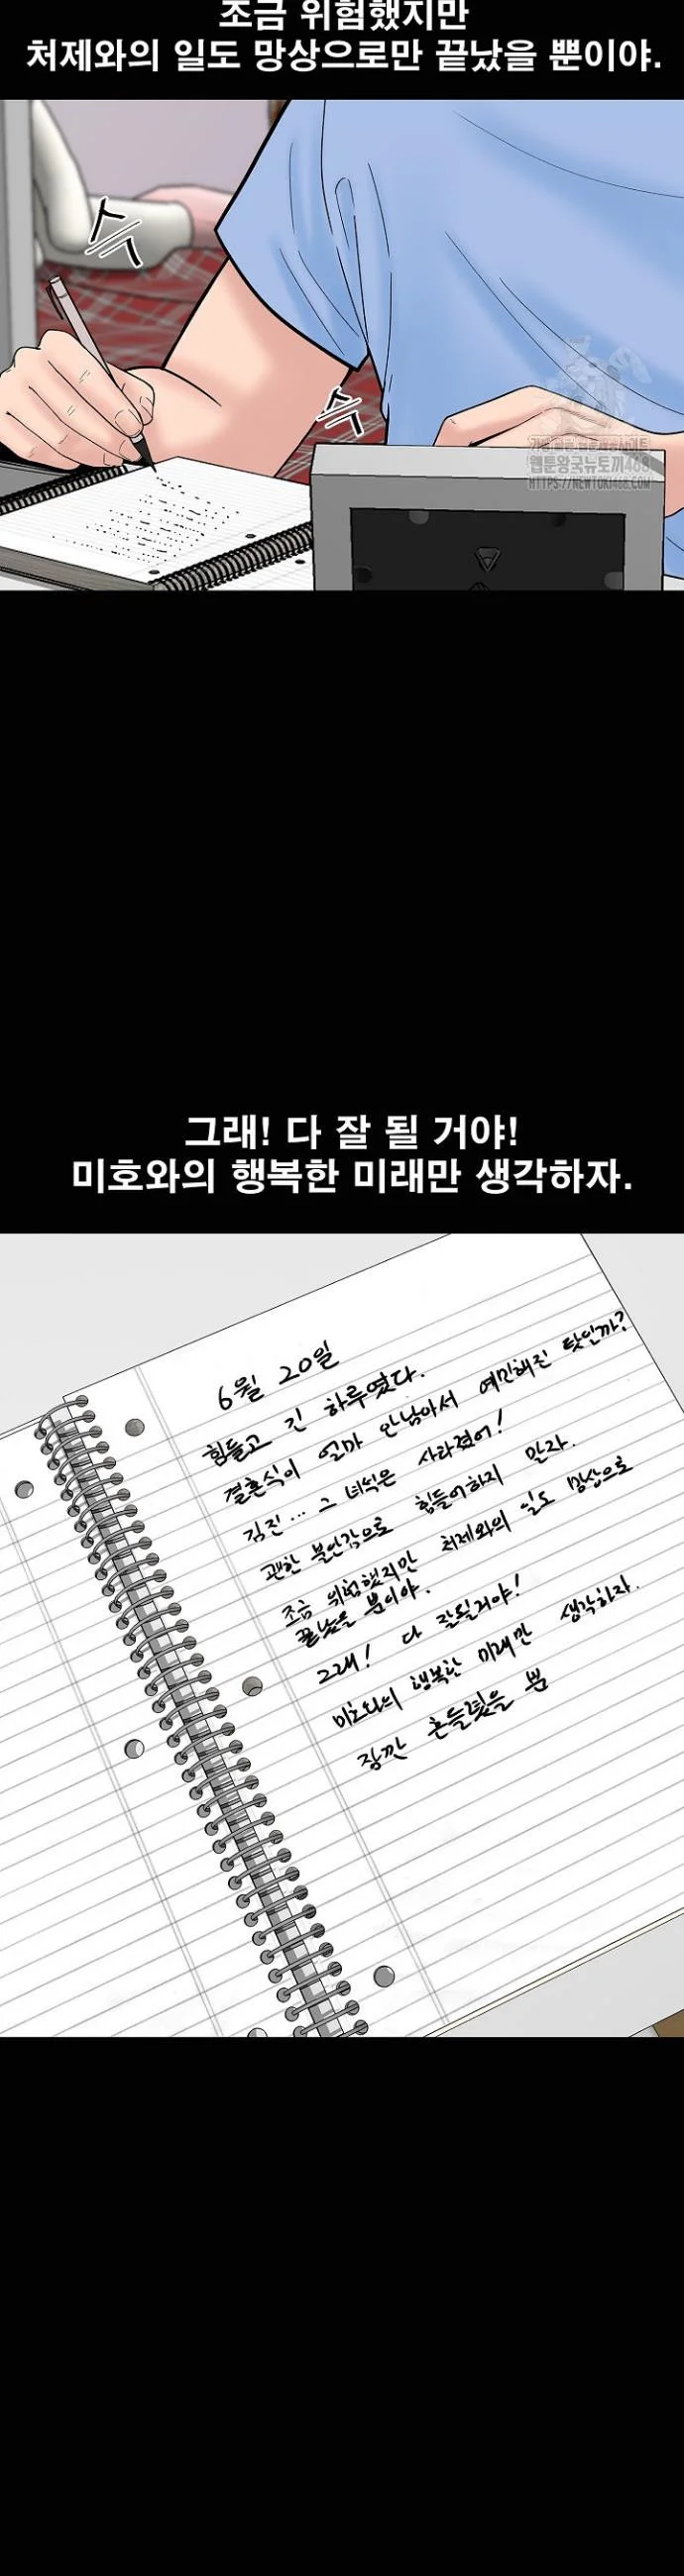 조금 위험했지만
처제와의 일도 망상으로만 끝났을 뿐이야.
스윽
스윽
웹툰왕국뉴토끼468
HTTPS://NEWTOKI468
그래! 다 잘 될 거야!
미호와의 행복한 미래만 생각하자.
6월 20일
힘들고 긴 하루였다.
결혼식이 얼마 안남아서 예민해진 탓인가?
김진... 그 녀석은 사라졌어!
괜한 불안감으로 힘들어하지 말자.
조금 위험했지만 처제와의 일도 망상으로
끝났을 뿐이야.
그래! 다 잘될거야!
미호와의 행복한 미래만 생각하자.
잠깐 흔들렸을 뿐